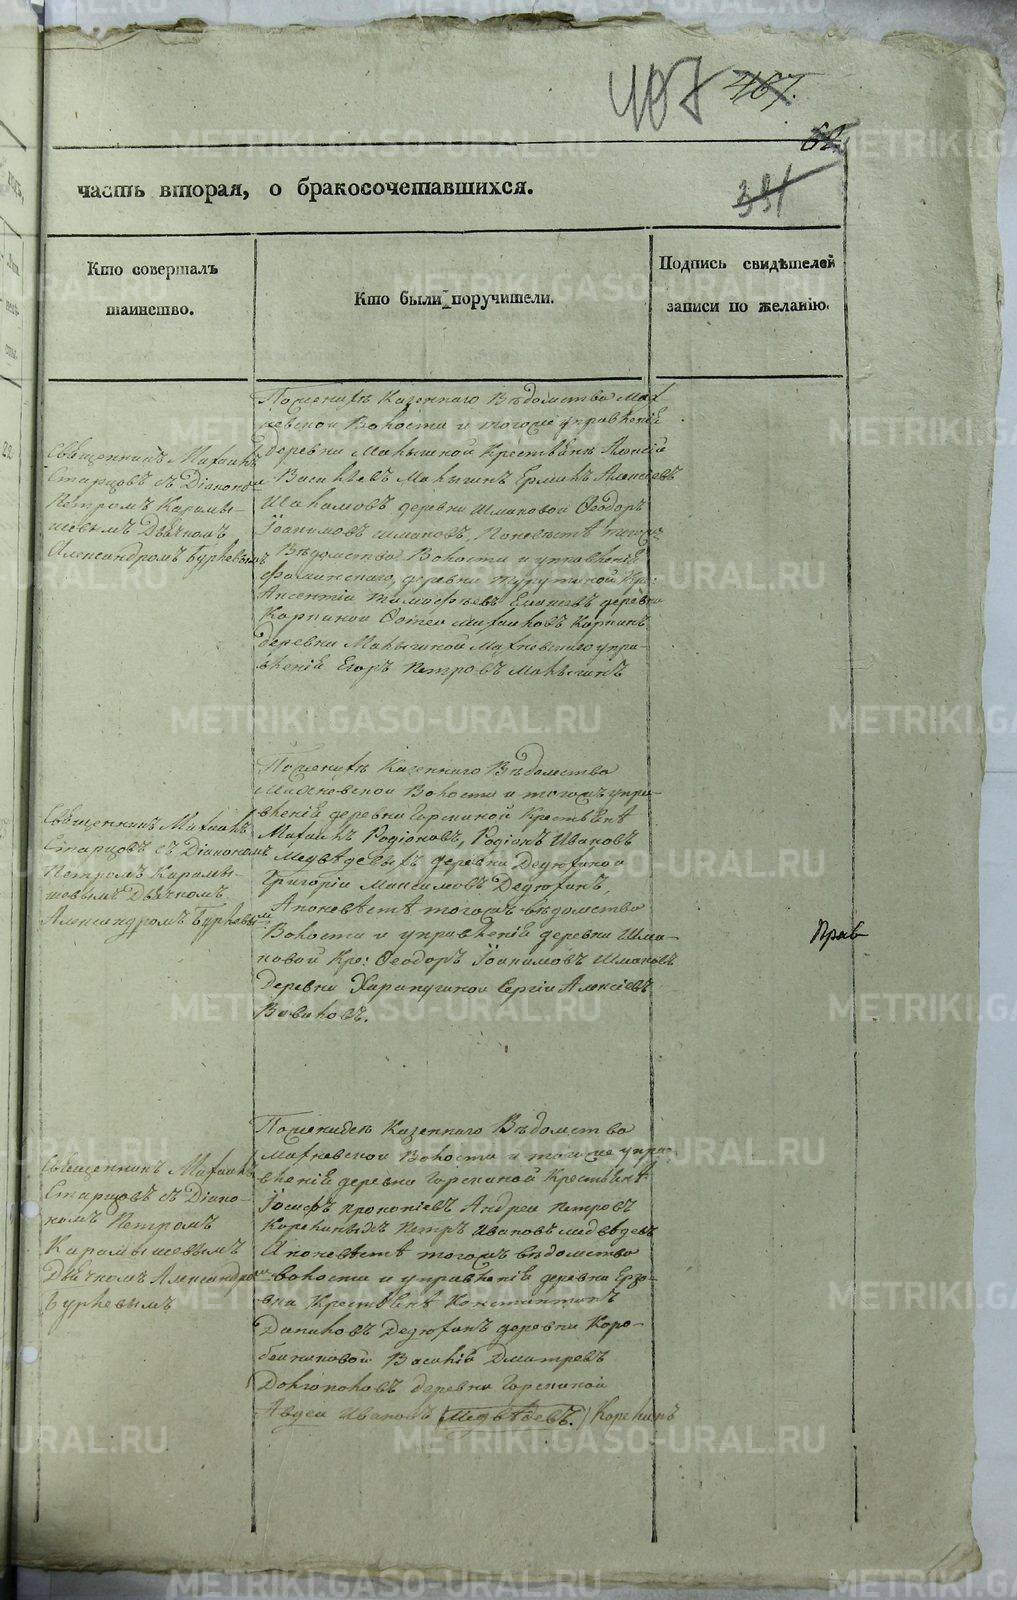 407 467.
62
331
часть вторая, о бракосочетавшихся.
Кто совершалъ таинство.
Кто были поручители.
Подпись свидѣтелей записи по желанію.
Священникъ Михаилъ
Старцовъ съ Діакономъ
Петромъ Карамы-
шевымъ Дьячкомъ
Александромъ Бурлевымъ
По женихѣ Казеннаго Вѣдомства Мах-
невской Волости и тогоже управленія
деревни Малыгиной Крестьянѣ Алексій
Васильевъ Малыгинъ Ермилъ Алексѣевъ
деревни Шмаковой Ѳеодоръ
Іоакимовъ Шмаковъ, По невѣстѣ тогоже
Вѣдомства Волости и управленія
Фоминскаго, деревни Туругиной Кре:
Аксентій Тимофѣевъ деревни
Карпиной Михайловъ Карпинъ
деревни Малыгиной Махневскаго упра-
вленія Егоръ Петровъ Малыгинъ
Священникъ Михаилъ
Старцовъ съ Діакономъ
Петромъ Карамы-
шевымъ Дьячкомъ
Александромъ Бурлевымъ
По женихѣ Казеннаго Вѣдомства
Махневской Волости и тогожъ упра-
вленія деревни Горскиной Крестьянѣ
Михаилъ Родіоновъ, Родіонъ Ивановъ
Медвѣдевыхъ деревни Дедюхиной
Григорій Максимовъ Дедюхинъ,
А по невѣстѣ тогожъ вѣдомства
Волости и управленія деревни Шма-
ковой Кре: Ѳеодоръ Іоакимовъ Шмаковъ
деревни Сергій Алексіевъ
Вавиловъ.
Прав
Священникъ Михаилъ
Старцовъ съ Діако-
номъ Петромъ
Карамышевымъ
Дьячкомъ Александромъ
Бурлевымъ
По женихе Казеннаго Вѣдомства
Махневской Волости и тогоже упра-
вленія деревни Горскиной Крестьянѣ
Іосифъ Прокопіевъ Андрей Петровъ
Корелиныхъ Петръ Ивановъ Медвѣдевъ
А по невѣстѣ тогожъ вѣдомства
волости и управленія деревни Ерзо-
вки Крестьянѣ Константинъ
Даниловъ Дедюхинъ деревни Коро-
бейниковой Василій Дмитревъ
Долгополовъ деревни Горскиной
Авдей Ивановъ (Медвѣдевъ.) Корелинъ
METRIKI.GASO-URAL.RU